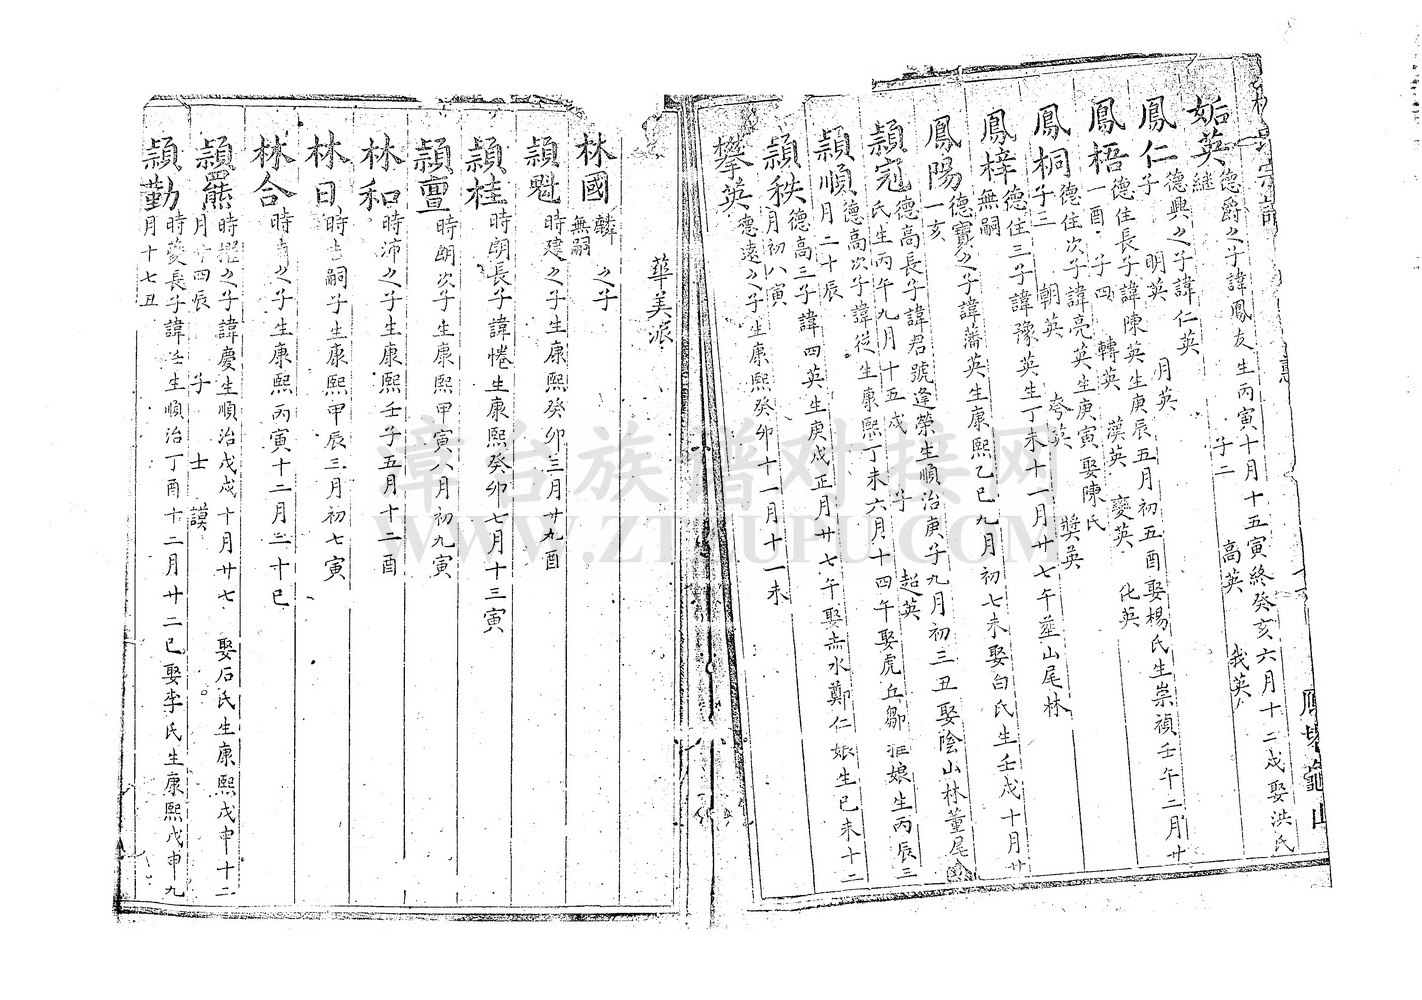 姤英 德爵之子諱鳳友生丙寅十月十五寅終癸亥六月十二戌娶洪氏
繼 子二 高英 我英
鳳仁 德興之子諱仁英
子 明英 月英
鳳梧 德住長子諱陳英生庚辰五月初五酉娶楊氏生崇禎壬午二月廿
一酉 子四 轉英 漢英 變英 化英
鳳桐 德住次子諱亮英生庚寅娶陳氏
子三 朝英 夸英 獎英
鳳梓 德住三子諱豫英生丁未十一月廿七午塟山尾林
無嗣
鳳陽 德寳之子諱蕃英生康熙乙巳九月初七未娶白氏生壬戌十月廿
一亥
穎冠 德高長子諱君號逢榮生順治庚子九月初三丑娶陰山林董尾
氏生丙午九月十五戌 子 超英
穎順 德高次子諱從生康熙丁未六月十四午娶虎丘鄒 娘生丙辰三
月二十辰
穎秩 德高三子諱四英生庚戌正月廿七午娶赤水鄭仁娘生己未十二
月初八寅
攀英 德遠之子生康熙癸卯十一月十一未
華美派
林國 麟之子
無嗣
穎魁 時建之子生康熙癸卯三月廿九酉
穎桂 時朗長子諱惓生康熙癸卯七月十三寅
穎亶 時朗次子生康熙甲寅八月初九寅
林和 時沛之子生康熙壬子五月十二酉
林日 時 嗣子生康熙甲辰三月初七寅
林合 時 之子生康熙丙寅十二月二十巳
穎羆 時擢之子諱慶生順治戊戌十月廿七 娶石氏生康熙戊申十二
月十四辰 子 士謨
穎勤 時夔長子諱 生順治丁酉十二月廿二巳娶李氏生康熙戊申九
月十七丑
漳台族谱对接网
WWW.ZTZUPU.COM